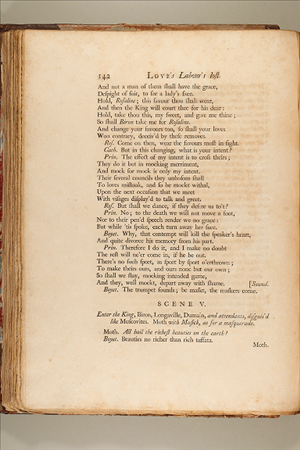 142 LOVE's Labour's lost
And not a man of them shall have the grace,
Despight of suit, to see a lady's face.
Hold, Rosaline; this favour thou shalt wear,
And then the King will court thee for his dear:
Hold, take thou this, my sweet, and give me thine;
So shall Biron take me for Rosaline.
And change your favours too, so shall your loves
Woo contrary, deceiv'd by these removes.
Ros. Come on then, wear the favours most in sight.
Cath. But in this changing, what is your intent?
Prin. The effect of my intent is to cross theirs;
They do it but in mocking merriment,
And mock for mock is only my intent.
Their several councils they unbosom shall
To loves mistook, and so be mockt withal,
Upon the next occasion that we meet
With visages display'd to talk and greet.
Ros. But shall we dance, if they desire us to't?
Prin. No; to the death we will not move a foot,
Nor to their pen'd speech render we no grace:
But while 'tis spoke, each turn away her face.
Boyet. Why, that contempt will kill the speaker's heart,
And quite divorce his memory from his part.
Prin. Therefore I do it, and I make no doubt
The rest will ne'er come in, if he be out.
There's no such sport, as sport by sport o'erthrown;
To make theirs ours, and ours none but our own;
So shall we stay, mocking intended game,
And they, well mockt, depart away with shame. [Sound.
Boyet. The trumpet sounds; be maskt, the maskers come.
SCENE V.
Enter the King, Biron, Longaville, Dumain, and attendants, disguis'd
like Muscovites. Moth with Musick, as for a masquerade.
Moth. All hail the richest beauties on the earth!
Boyet. Beauties no richer than rich taffata.
Moth.